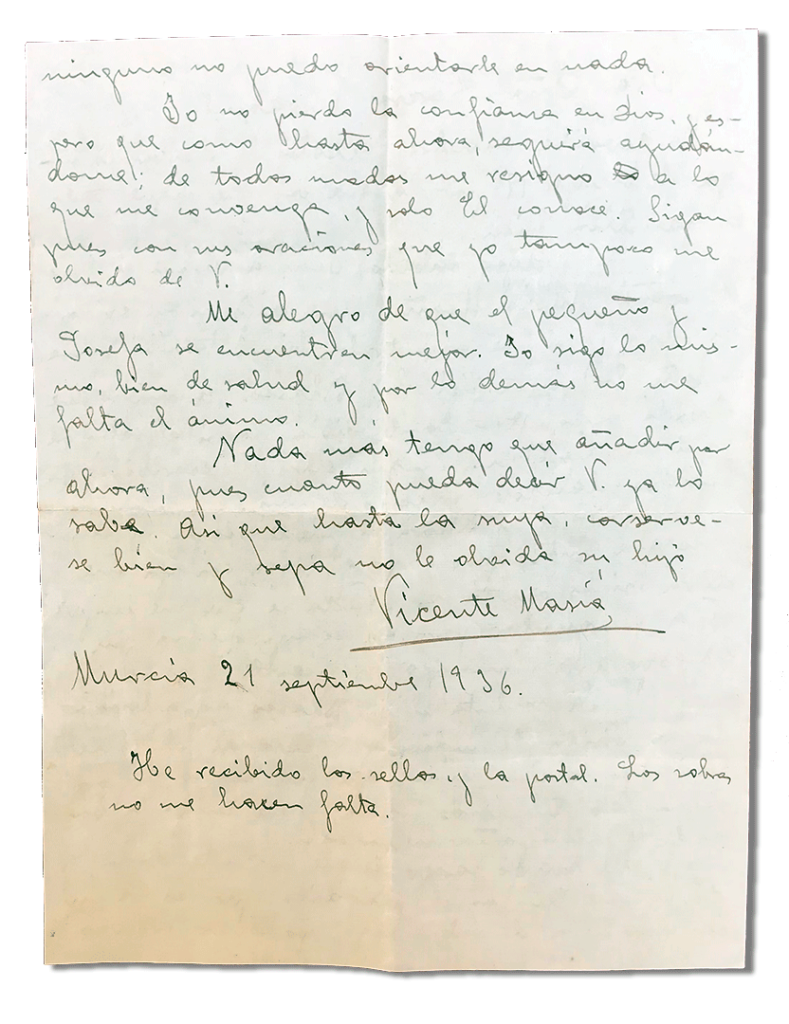 ninguno no puedo orientarle en nada.
Yo no pierdo la confianza en Dios, y es-
pero que como hasta ahora, seguirá ayudán-
dome; de todos modos me resigno a lo
que me convenga, y solo El conoce. Sigan
pues con sus oraciones que yo tampoco me
olvido de V.
Me alegro de que el pequeño y
Josefa se encuentren mejor. Yo sigo lo mis-
mo, bien de salud y por lo demás no me
falta el ánimo.
Nada más tengo que añadir por
ahora, pues cuanto pueda decir V. ya lo
sabe. Asi que hasta la suya, conserve-
se bien y sepa no le olvida su hijo
Vicente Masiá
Murcia 21 septiembre 1936.
He recibido los sellos, y la postal. Los sobres
no me hacen falta.